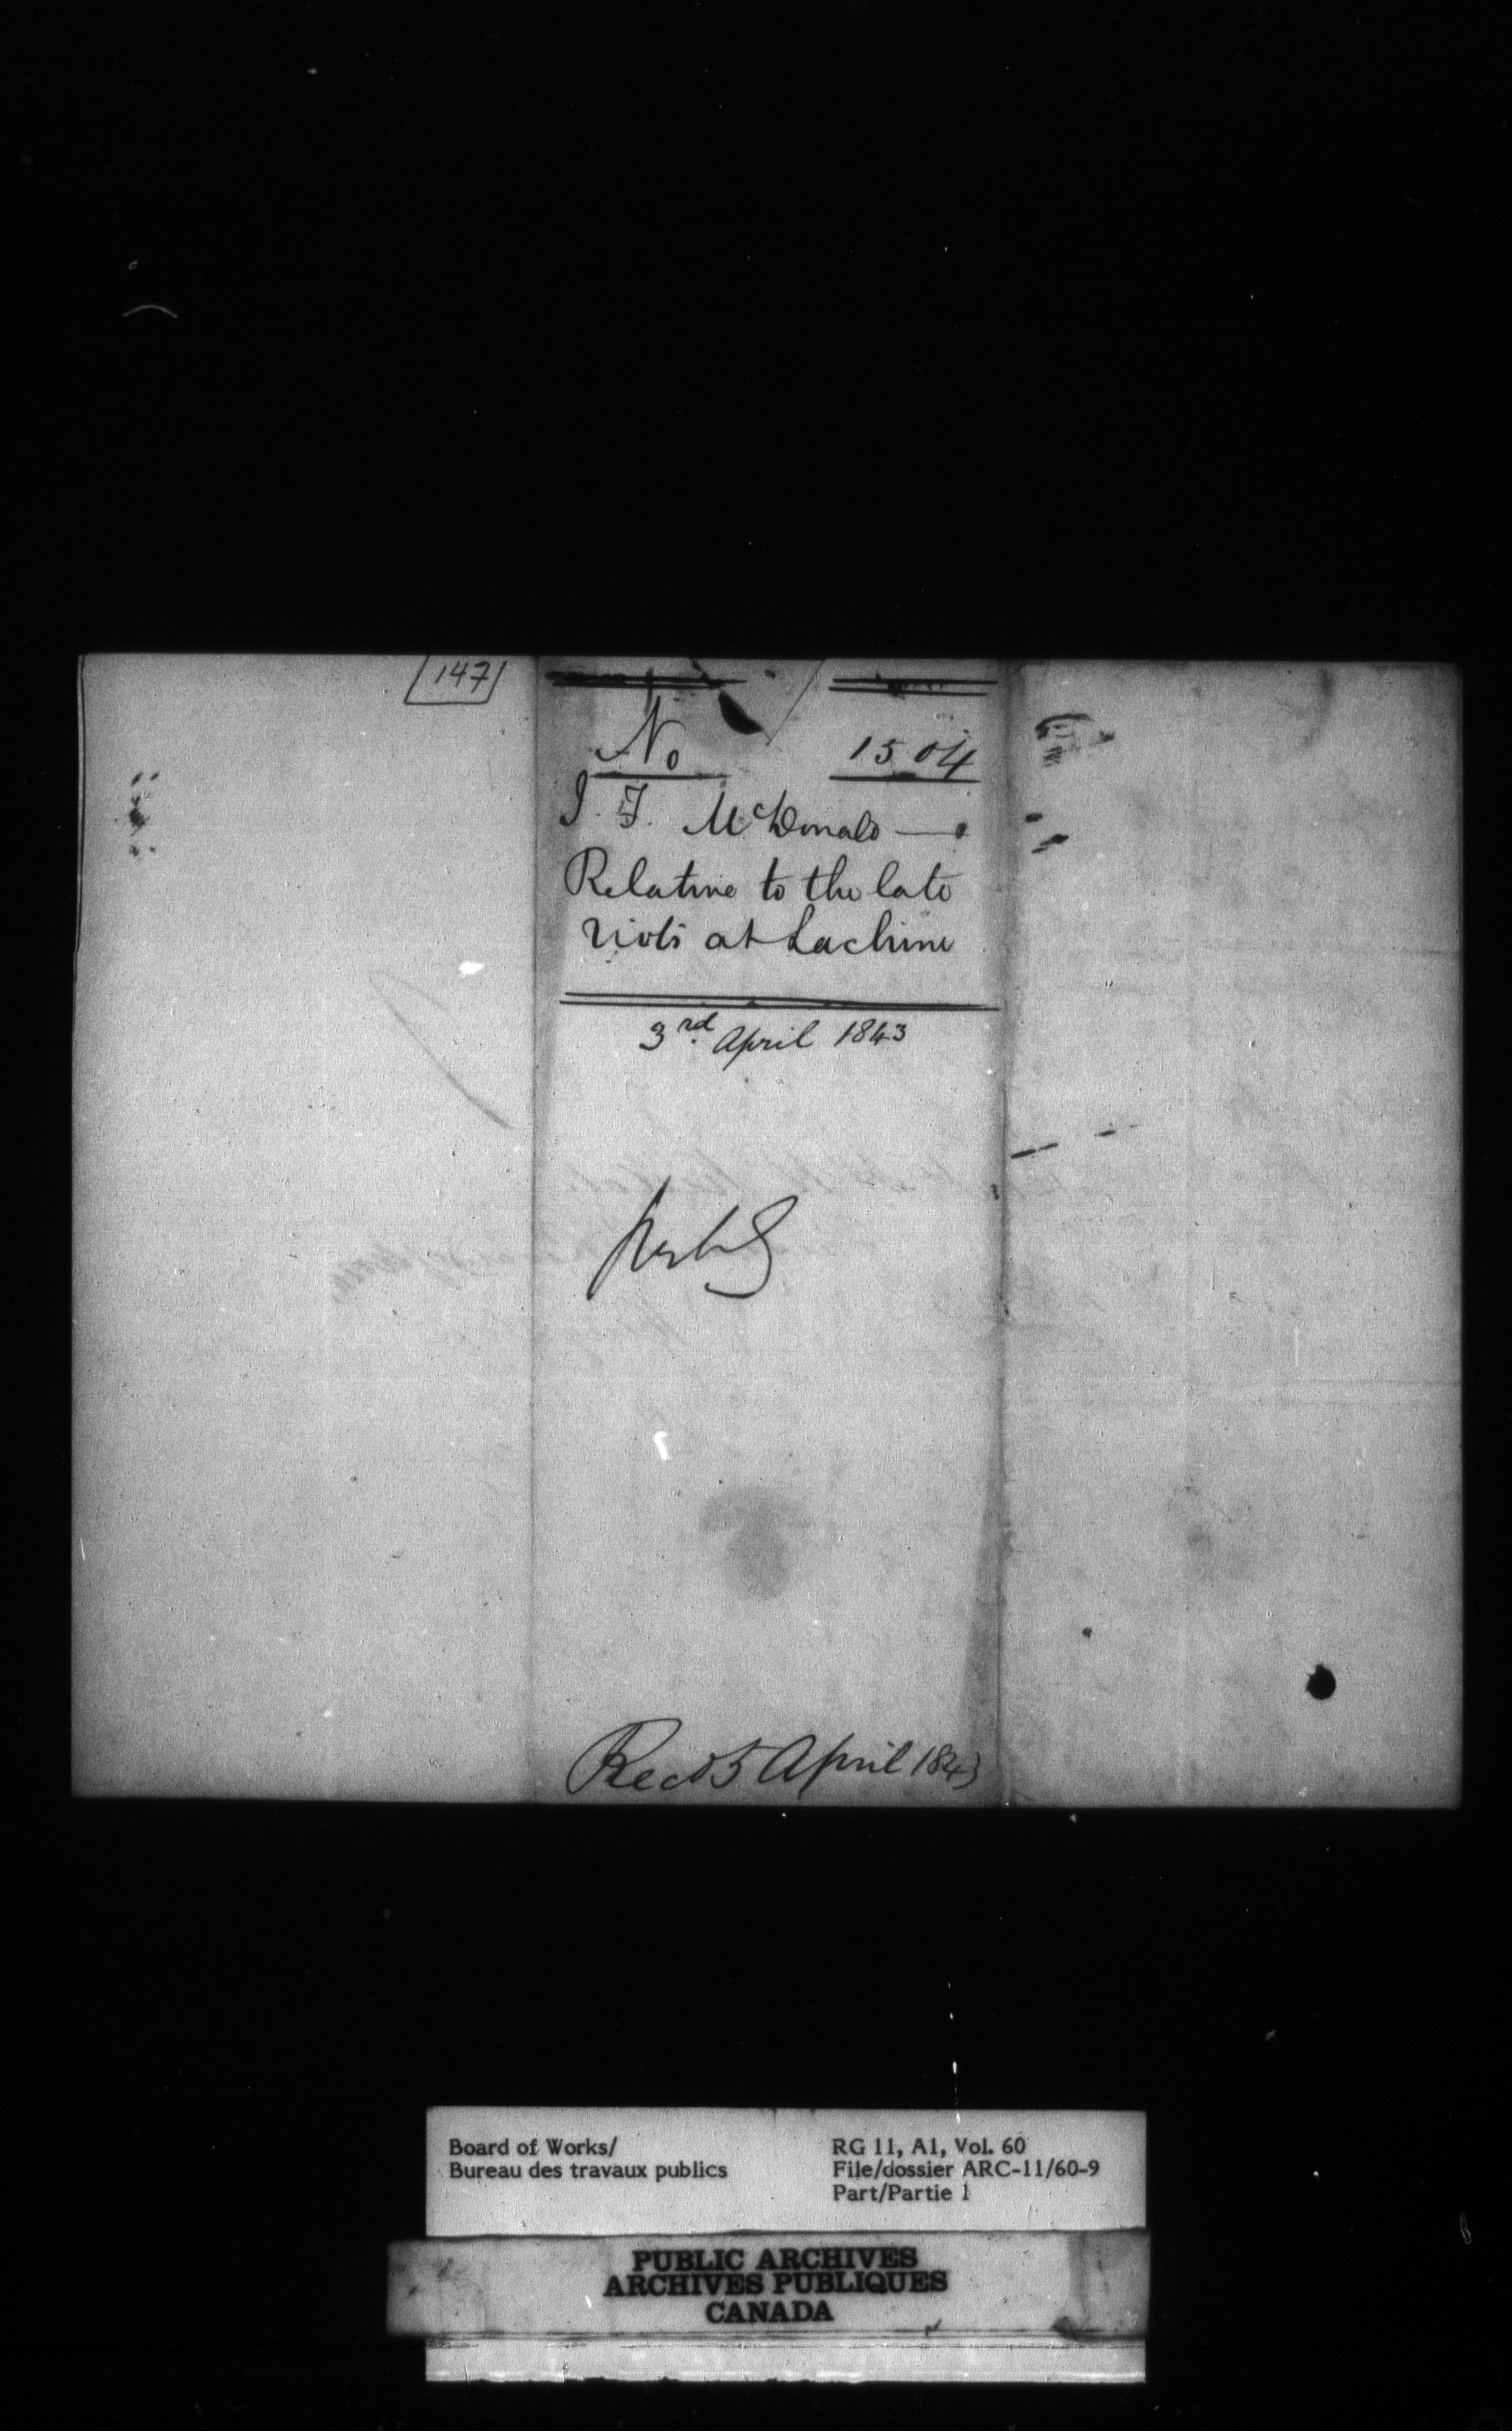 147
No 1504
J. F. McDonald —
Relative to the late
riots at Lachine
3rd. April 1843
Recd 5 April 1843
Board of Works/
Bureau des travaux publics
RG 11, A1, Vol. 60
File/dossier ARC-11/60-9
Part/Partie 1
PUBLIC ARCHIVES
ARCHIVES PUBLIQUES
CANADA